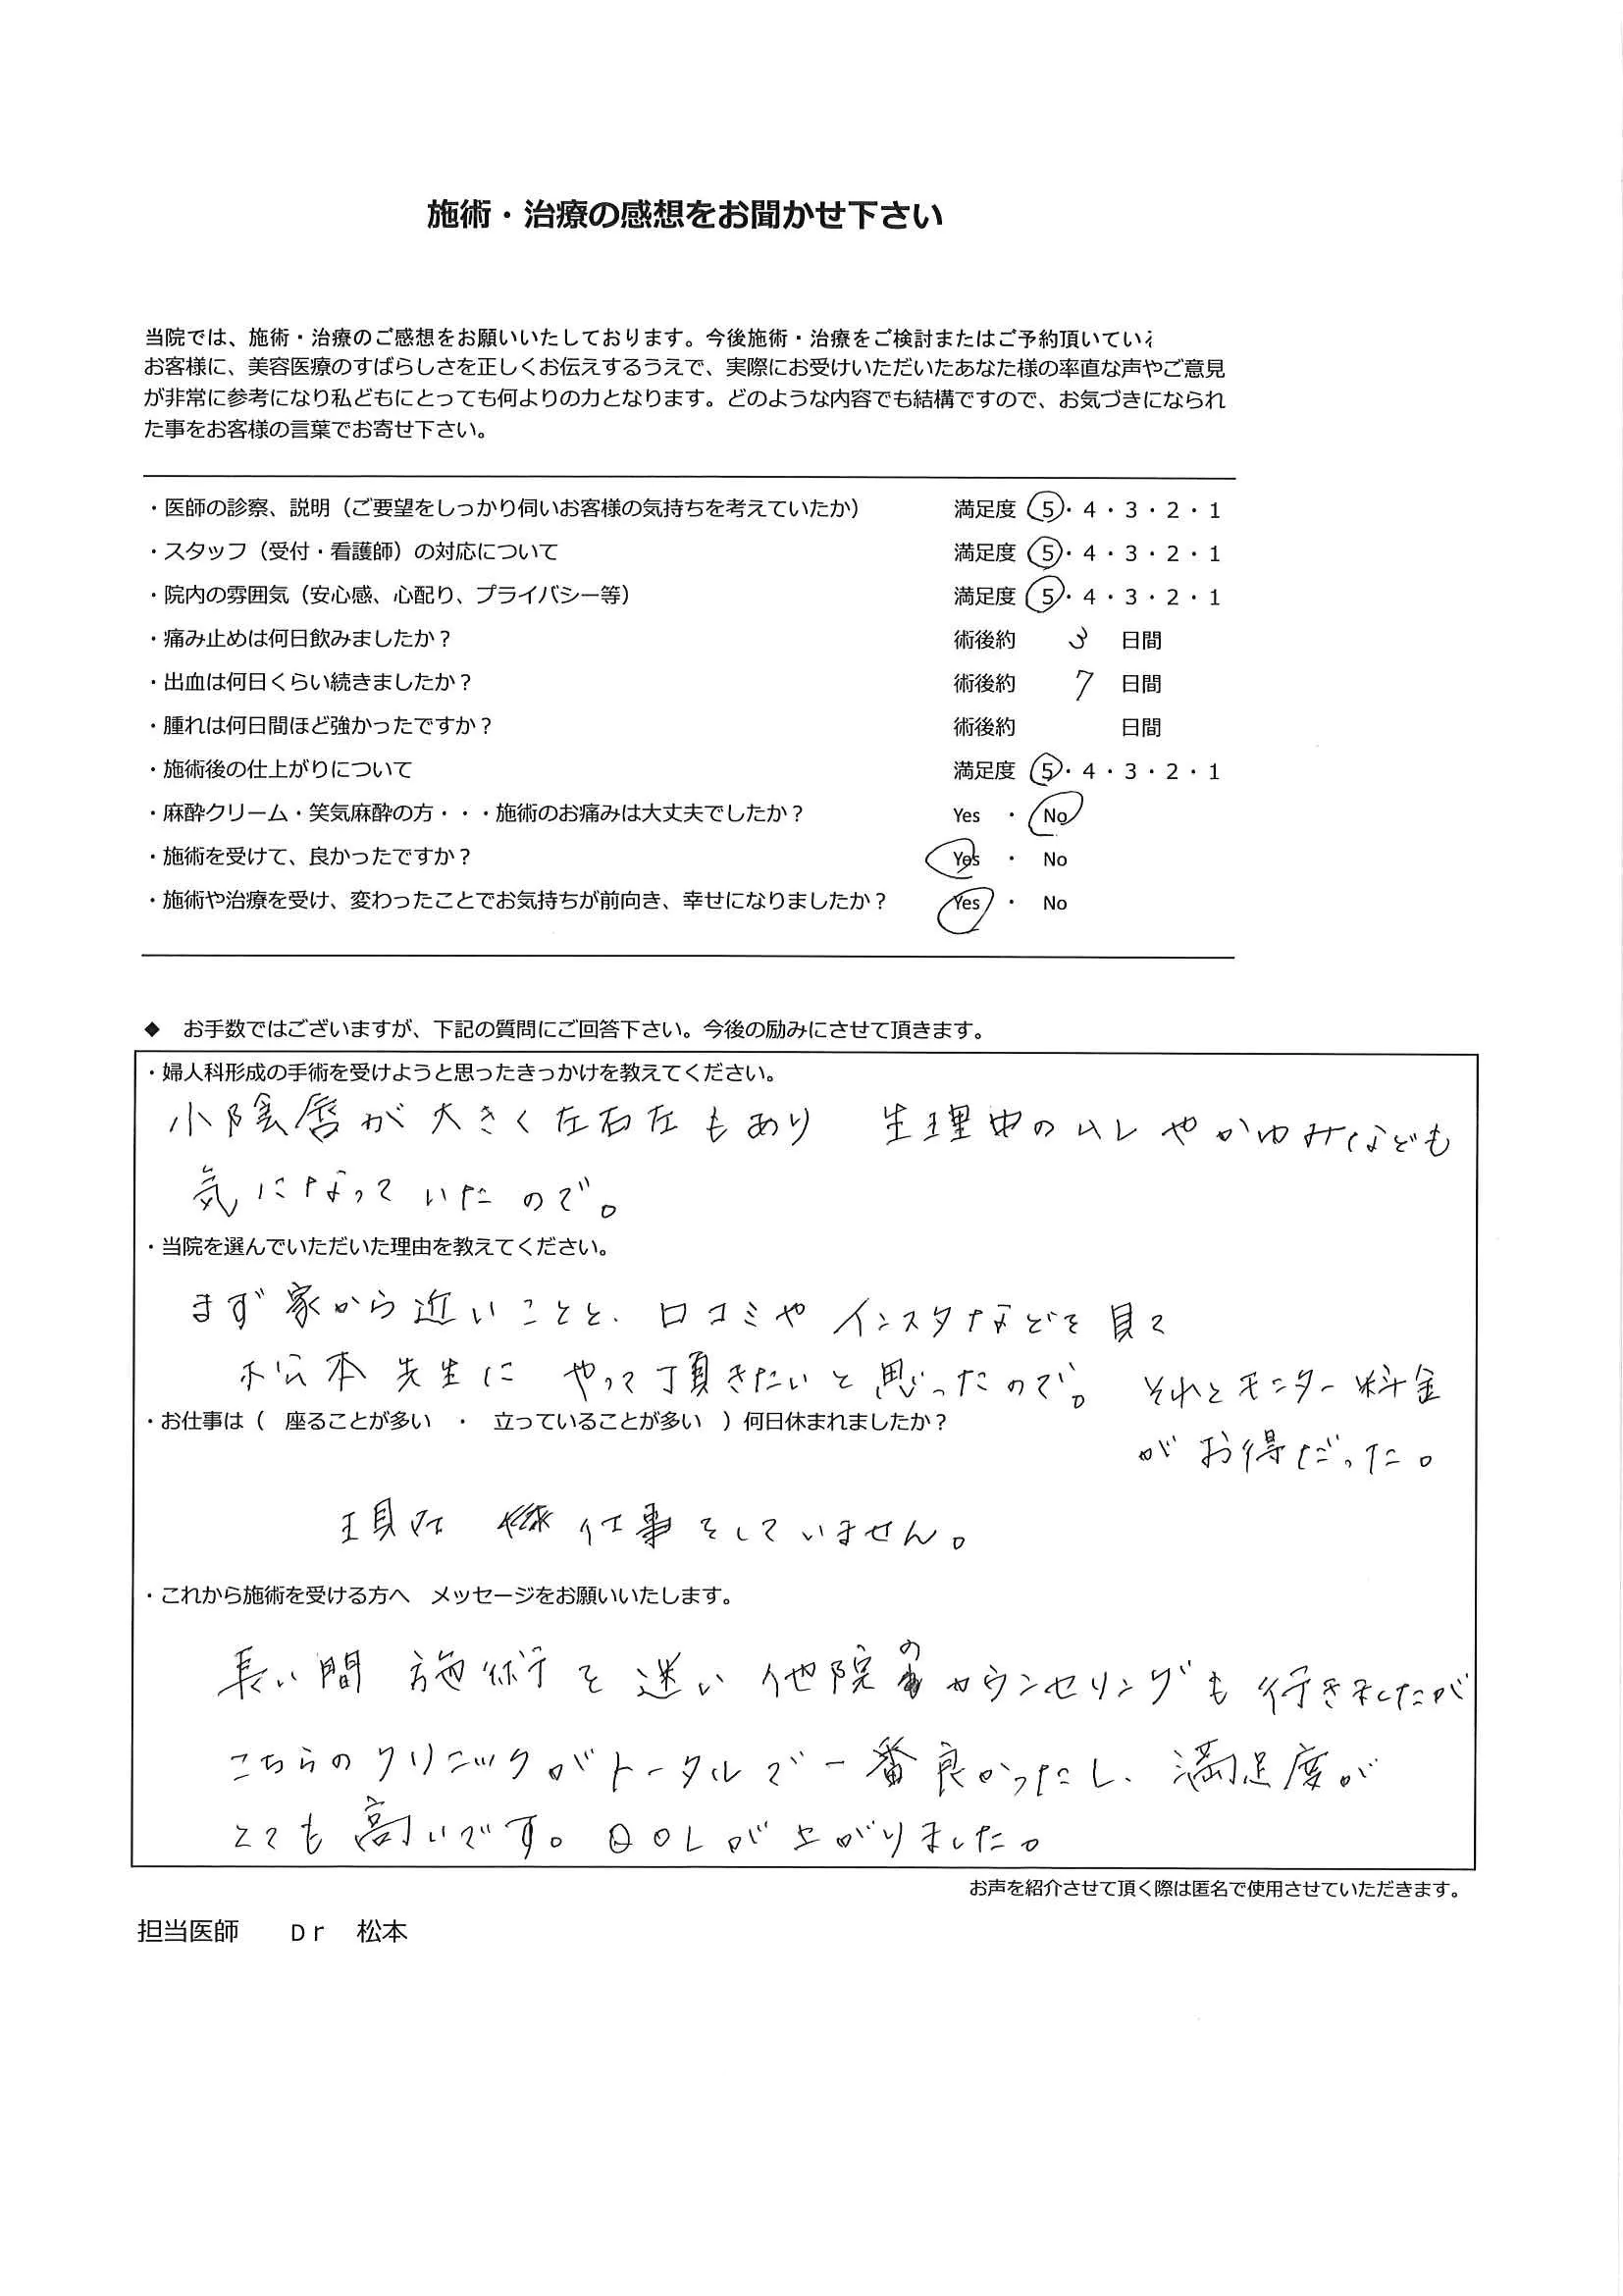 施術・治療の感想をお聞かせ下さい
当院では、施術・治療のご感想をお願いいたしております。今後施術・治療をご検討またはご予約頂いてい
お客様に、美容医療のすばらしさを正しくお伝えするうえで、実際にお受けいただいたあなた様の率直な声やご意見
が非常に参考になり私どもにとっても何よりの力となります。どのような内容でも結構ですので、お気づきになられ
た事をお客様の言葉でお寄せ下さい。
・医師の診察、説明（ご要望をしっかり伺いお客様の気持ちを考えていたか） 満足度 5・4・3・2・1
・スタッフ（受付・看護師）の対応について 満足度 5・4・3・2・1
・院内の雰囲気（安心感、心配り、プライバシー等） 満足度 5・4・3・2・1
・痛み止めは何日飲みましたか？ 術後約 3 日間
・出血は何日くらい続きましたか？ 術後約 7 日間
・腫れは何日間ほど強かったですか？ 術後約 日間
・施術後の仕上がりについて 満足度 5・4・3・2・1
・麻酔クリーム・笑気麻酔の方・・・施術のお痛みは大丈夫でしたか？ Yes ・ No
・施術を受けて、良かったですか？ Yes ・ No
・施術や治療を受け、変わったことでお気持ちが前向き、幸せになりましたか？ Yes ・ No
◆ お手数ではございますが、下記の質問にご回答下さい。今後の励みにさせて頂きます。
・婦人科形成の手術を受けようと思ったきっかけを教えてください。
小陰唇が大きく左右左もあり 生理中のムレやかゆみなども
気になっていたので。
・当院を選んでいただいた理由を教えてください。
まず家から近いことと、口コミやインスタなどを見て
松本先生にやって頂きたいと思ったので。それとモニター料金
がお得だった。
・お仕事は（ 座ることが多い ・ 立っていることが多い ）何日休まれましたか？
現在 仕事をしていません。
・これから施術を受ける方へ メッセージをお願いいたします。
長い間 施術を迷い他院のカウンセリングも行きましたが
こちらのクリニックがトータルで一番良かったし、満足度が
とても高いです。QOLが上がりました。
お声を紹介させて頂く際は匿名で使用させていただきます。
担当医師 Dr 松本